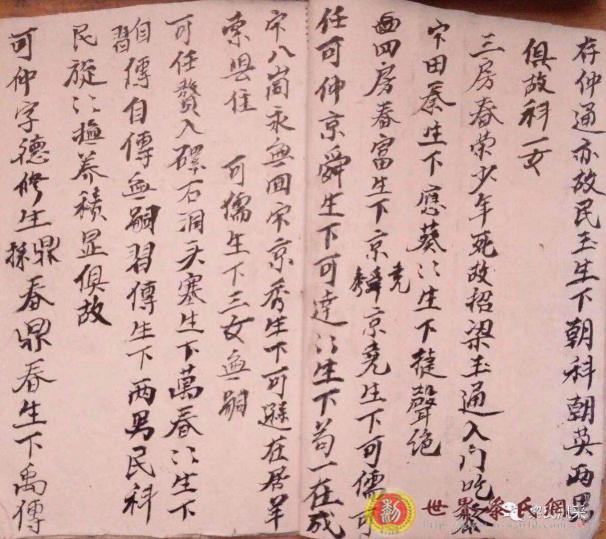 存仲通亦故民玉生下朝科朝英两男
俱故科一女
三房春荣少年死故招梁玉通入门吃黎
宗田泰生下應葵〻生下㨗聲绝
四房春富生下京舜京尭生下可儒可
任可仲京舜生下可達〻生下苟一在戍
宗八崗永無回宗京秀生下可遜在居羊
索县住 可儒生下三女無嗣
可任贅入礤石洞夫塞生下萬春〻生下
習傳自傳自傳無嗣習傳生下两男民科
民旋〻撫养積显俱故
可仲字德修生鼎採春鼎春生下禹傳
世界黎氏網